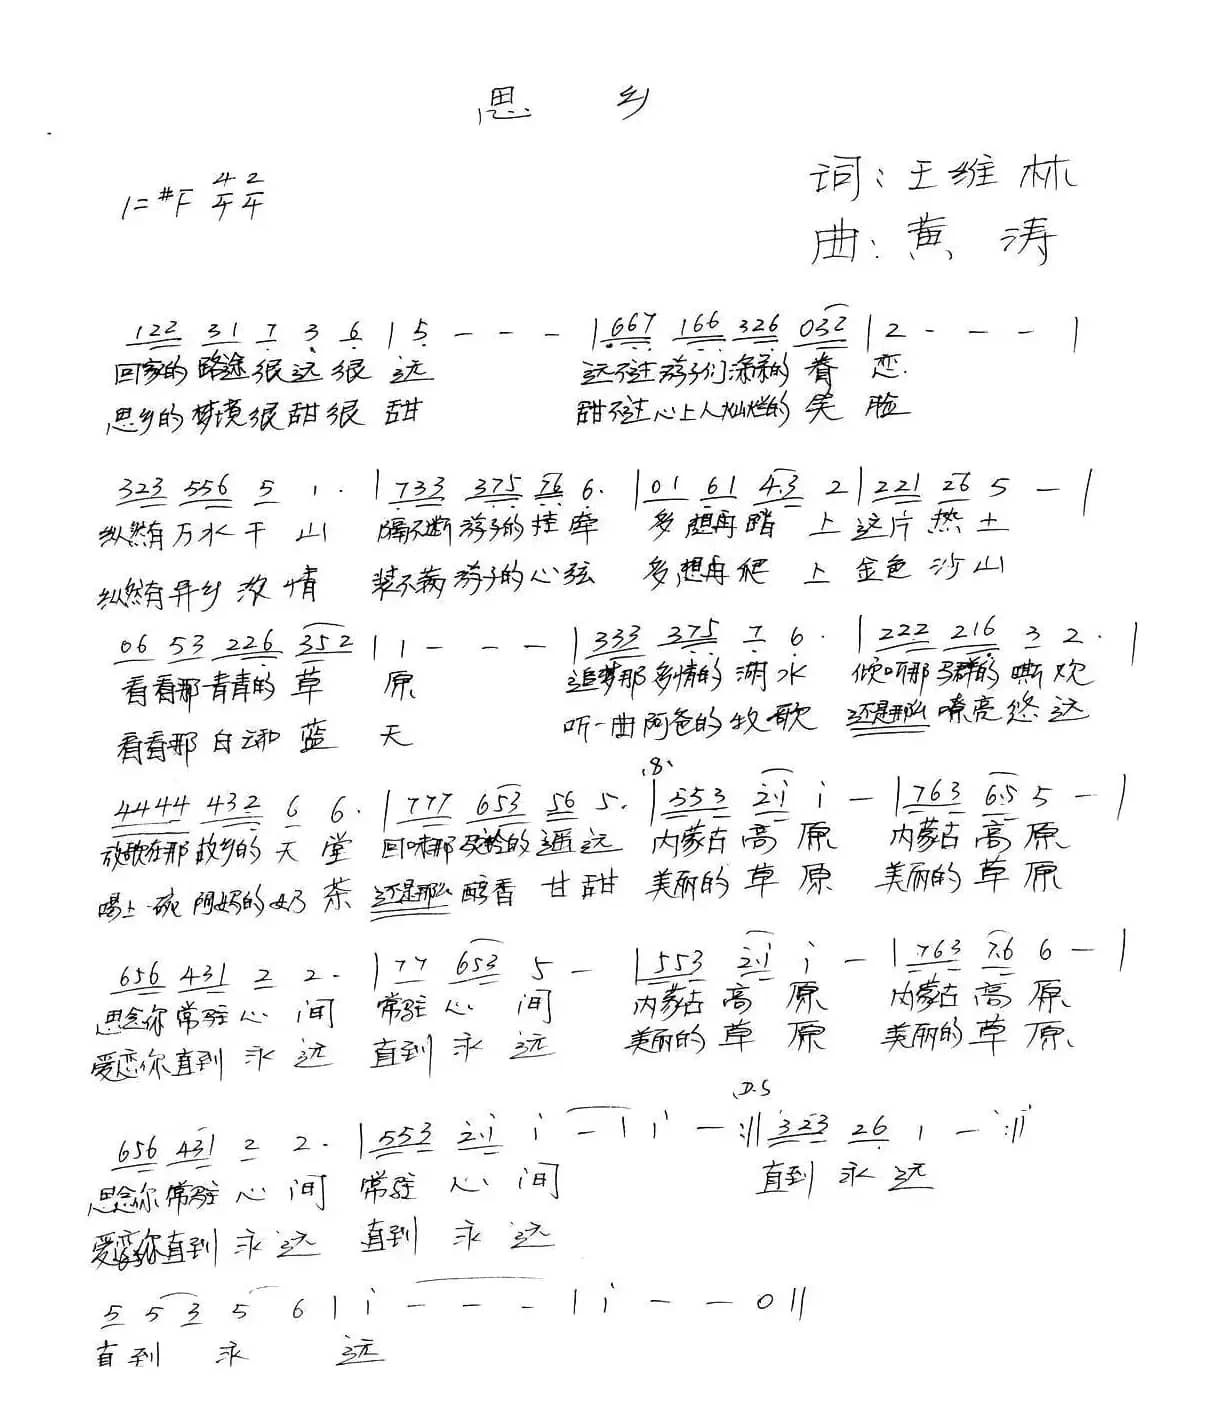 思 乡
1=#F 4/4 2/4
词:王维林
曲:黄 涛
122 31 7 3 6 | 5 - - - | 667 166 326 032 | 2 - - - |
回家的 路途 很远很 远 远不过 游子们 深深的 眷 恋.
思乡的 梦境 很甜很 甜 甜不过 心上人 灿烂的 笑 脸
323 556 5 1 · | 733 375 76 6· | 01 61 4·3 2 | 221 26 5 - |
纵然有 万水 千 山 隔不断 游子的 挂 牵 多想再 踏 上 这片 热 土
纵然有 异乡 浓 情 装不满 游子的 心弦 多想再 爬 上 金色 沙山
06 53 226 352 | 1 - - - | 333 375 7 6 · | 222 216 3 2 · |
看看那 青青的 草 原 追梦那 多情的 湖水 倾听那 马群的 嘶 欢
看看那 白云和 蓝 天 听一曲 阿爸的 牧歌 还是那么 嘹亮 悠远
4444 432 6 6 · | 777 653 56 5 · | 553 2·i i - | 763 6·5 5 - |
放歌在那 故乡的 天 堂 回味那 马铃的 遥远 内蒙古 高 原 内蒙古 高 原
喝上一碗 阿妈的 奶 茶 还是那么 醇香 甘甜 美丽的 草 原 美丽的 草 原
656 431 2 2 · | 77 653 5 - | 553 2·i i - | 763 7·6 6 - |
思念你 常驻 心 间 常驻 心 间 内蒙古 高 原 内蒙古 高 原
爱恋你 直到 永 远 直到 永 远 美丽的 草 原 美丽的 草 原
D.S
656 431 2 2 · | 553 2·i i - | i - :|| 323 26 1 - :||
思念你 常驻 心 间 常驻 心 间 直到 永 远
爱恋你 直到 永 远 直到 永 远
5 5 3 5 6 | i - - - | i - - 0 ||
直到 永 远